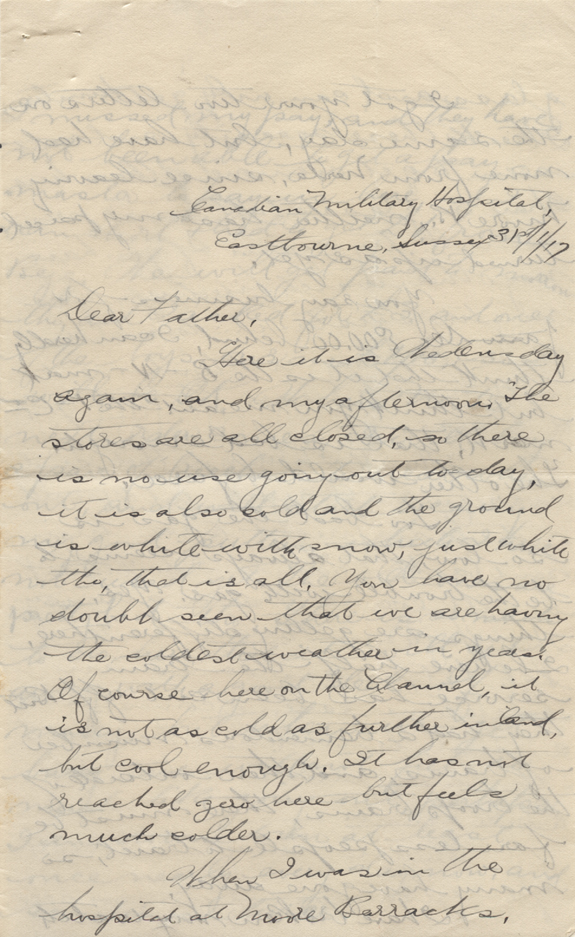 Canadian Military Hospital,
Eastbourne, Sussex 31st/1/17
Dear Father,
Here it is Wedensday
again, and my afternoon. The
stores are all closed, so there
is no use going out to-day,
it is also cold and the ground
is white with snow, just white
tho, that is all. You have no
doubt seen that we are having
the coldest weather in years.
Of course here on the Channel, it
is not as cold as further inland,
but cool enough. It has not
reached zero here but feels
much colder.
When I was in the
hospital at Moore Barracks,